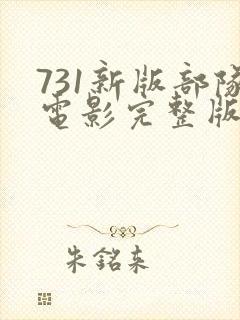 731新版部隊
電影完整版
朱銘来